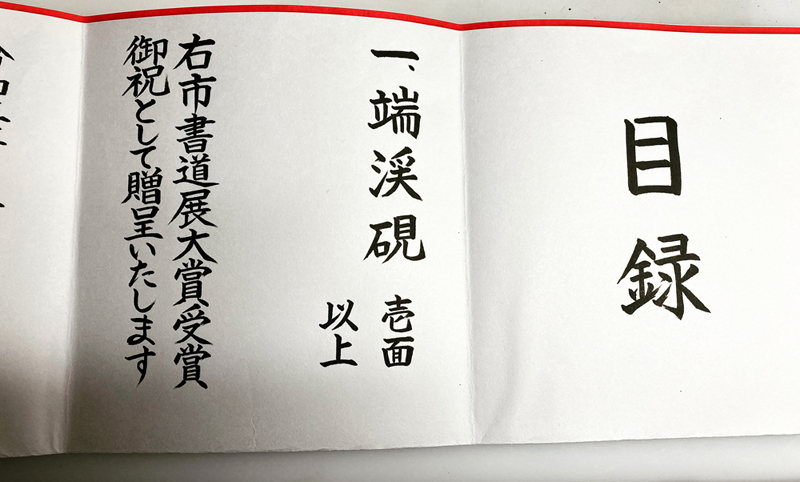 目録
一、端渓硯 壱面
以上
右市書道展大賞受賞
御祝として贈呈いたします